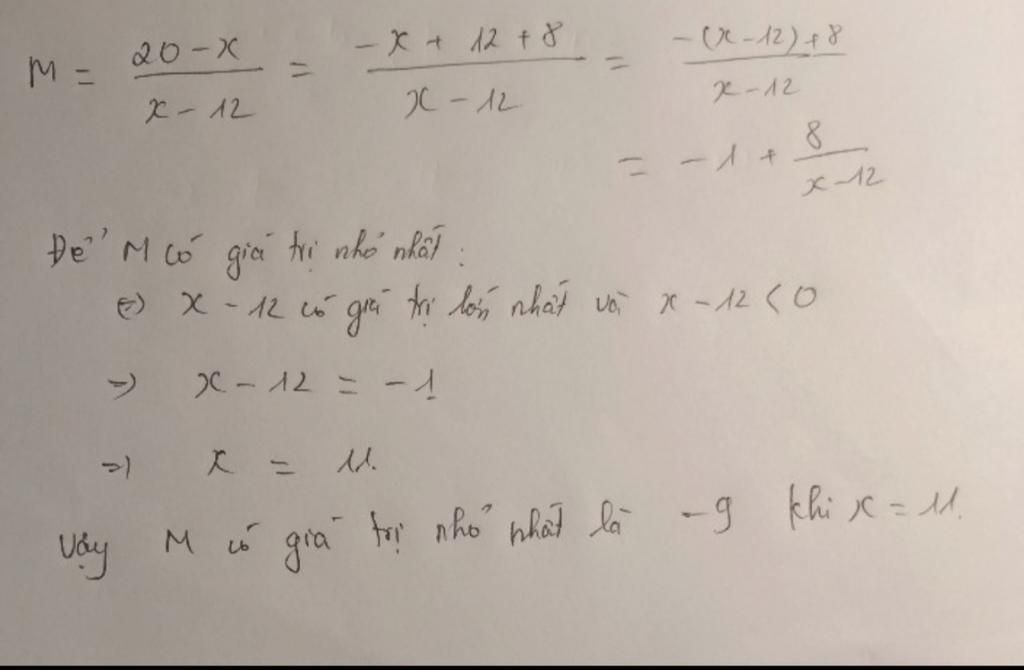 M = (20 - x)/(x - 12) = (-x + 12 + 8)/(x - 12) = (-(x - 12) + 8)/(x - 12)
= -1 + 8/(x - 12)
Để M có giá trị nhỏ nhất :
⇔ x - 12 có giá trị lớn nhất và x - 12 < 0
⇒ x - 12 = -1
⇒ x = 11.
Vậy M có giá trị nhỏ nhất là -9 khi x = 11.